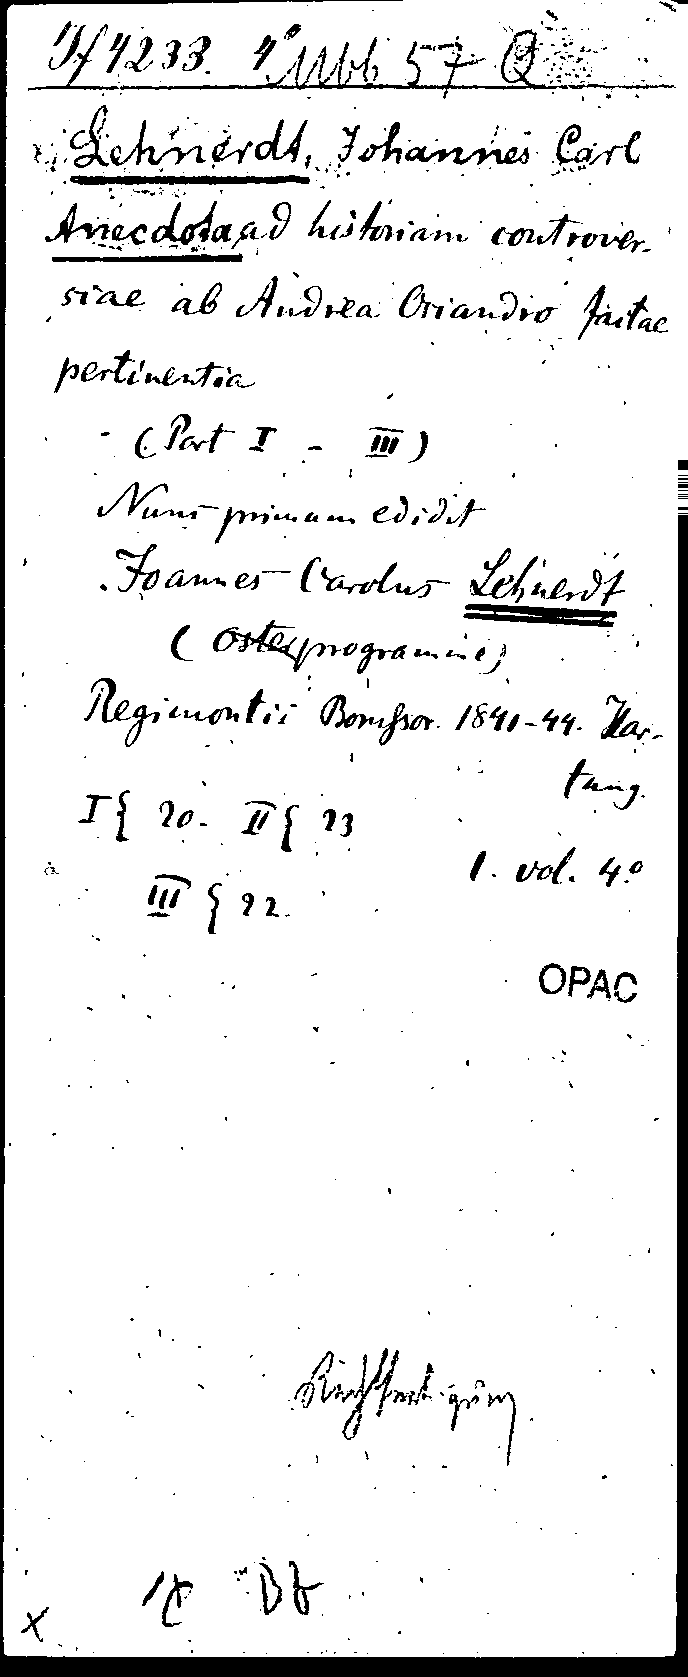 4233. 4° Mbb 57 Q
Lehnerdt, Johannes Carl
Anecdota ad historiam controver-
siae ab Andrea Osiandro factae
pertinentia
(Part I - III)
Nunc primum edidit
Joannes Carolus Lehnerdt
(Osterprogramme)
Regimontii Borussor. 1841-44. Har-
tung.
I{ 20. II{ 23
1. vol. 4°
III{ 22.
OPAC
Rechtfertigung
x